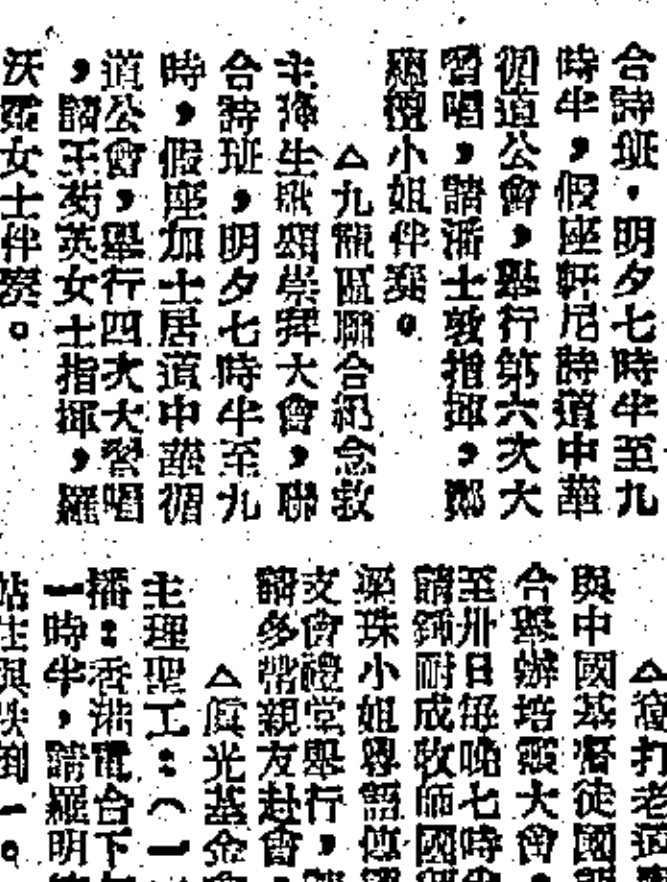 合詩班，明夕七時半至九
時半，假座軒尼詩道中華
循道公會，舉行第六次大
習唱，請潘士敦指揮，鄭
小姐伴奏。
△九龍區聯合紀念救
主降生歌頌崇拜大會，聯
合詩班，明夕七時半至九
時，假座加士居道中華循
道公會，舉行四次大習唱
，請王菊英女士指揮，羅
沃霖女士伴奏。
打老道
與中國基督徒國
合舉辦培靈大會，
至卅日每晚七時半
請鍾耐成牧師國
梁珠小姐粵語傳譯
支會禮堂舉行，
請多帶親友赴會，
△真光基金會
主理聖工：（一
播：香港電台下
一時半，請羅明
站住與跌倒一。